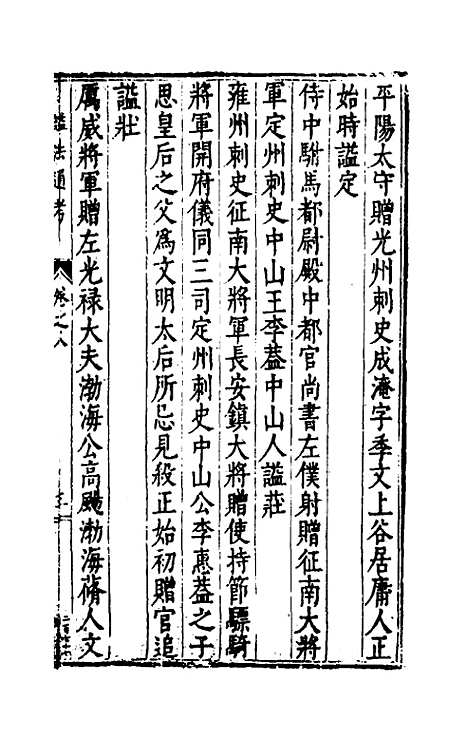 平陽太守贈光州刺史成淹字季文上谷居庸人正
始時謚定
侍中駙馬都尉殿中都官尚書左僕射贈征南大將
軍定州刺史中山王李蓋中山人謚莊
雍州刺史征南大將軍長安鎮大將贈使持節驃騎
將軍開府儀同三司定州刺史中山公李惠蓋之子
思皇后之父爲文明太后所忌見殺正始初贈官追
謚壯
厲威將軍贈左光禄大夫渤海公高颺渤海蓨人文
謚法通考
卷之八